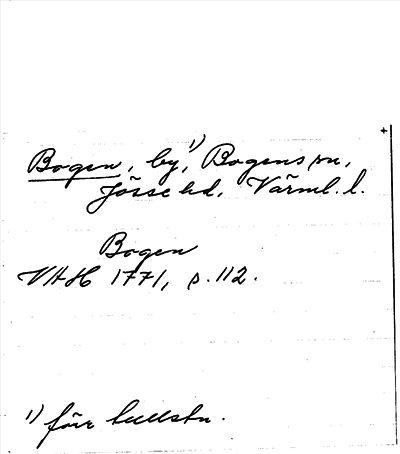 Bogen, by,¹⁾ Bogens sn,
Jösse hd, Värml. l.
Bogen
VAH 1771, p. 112.
1) förr